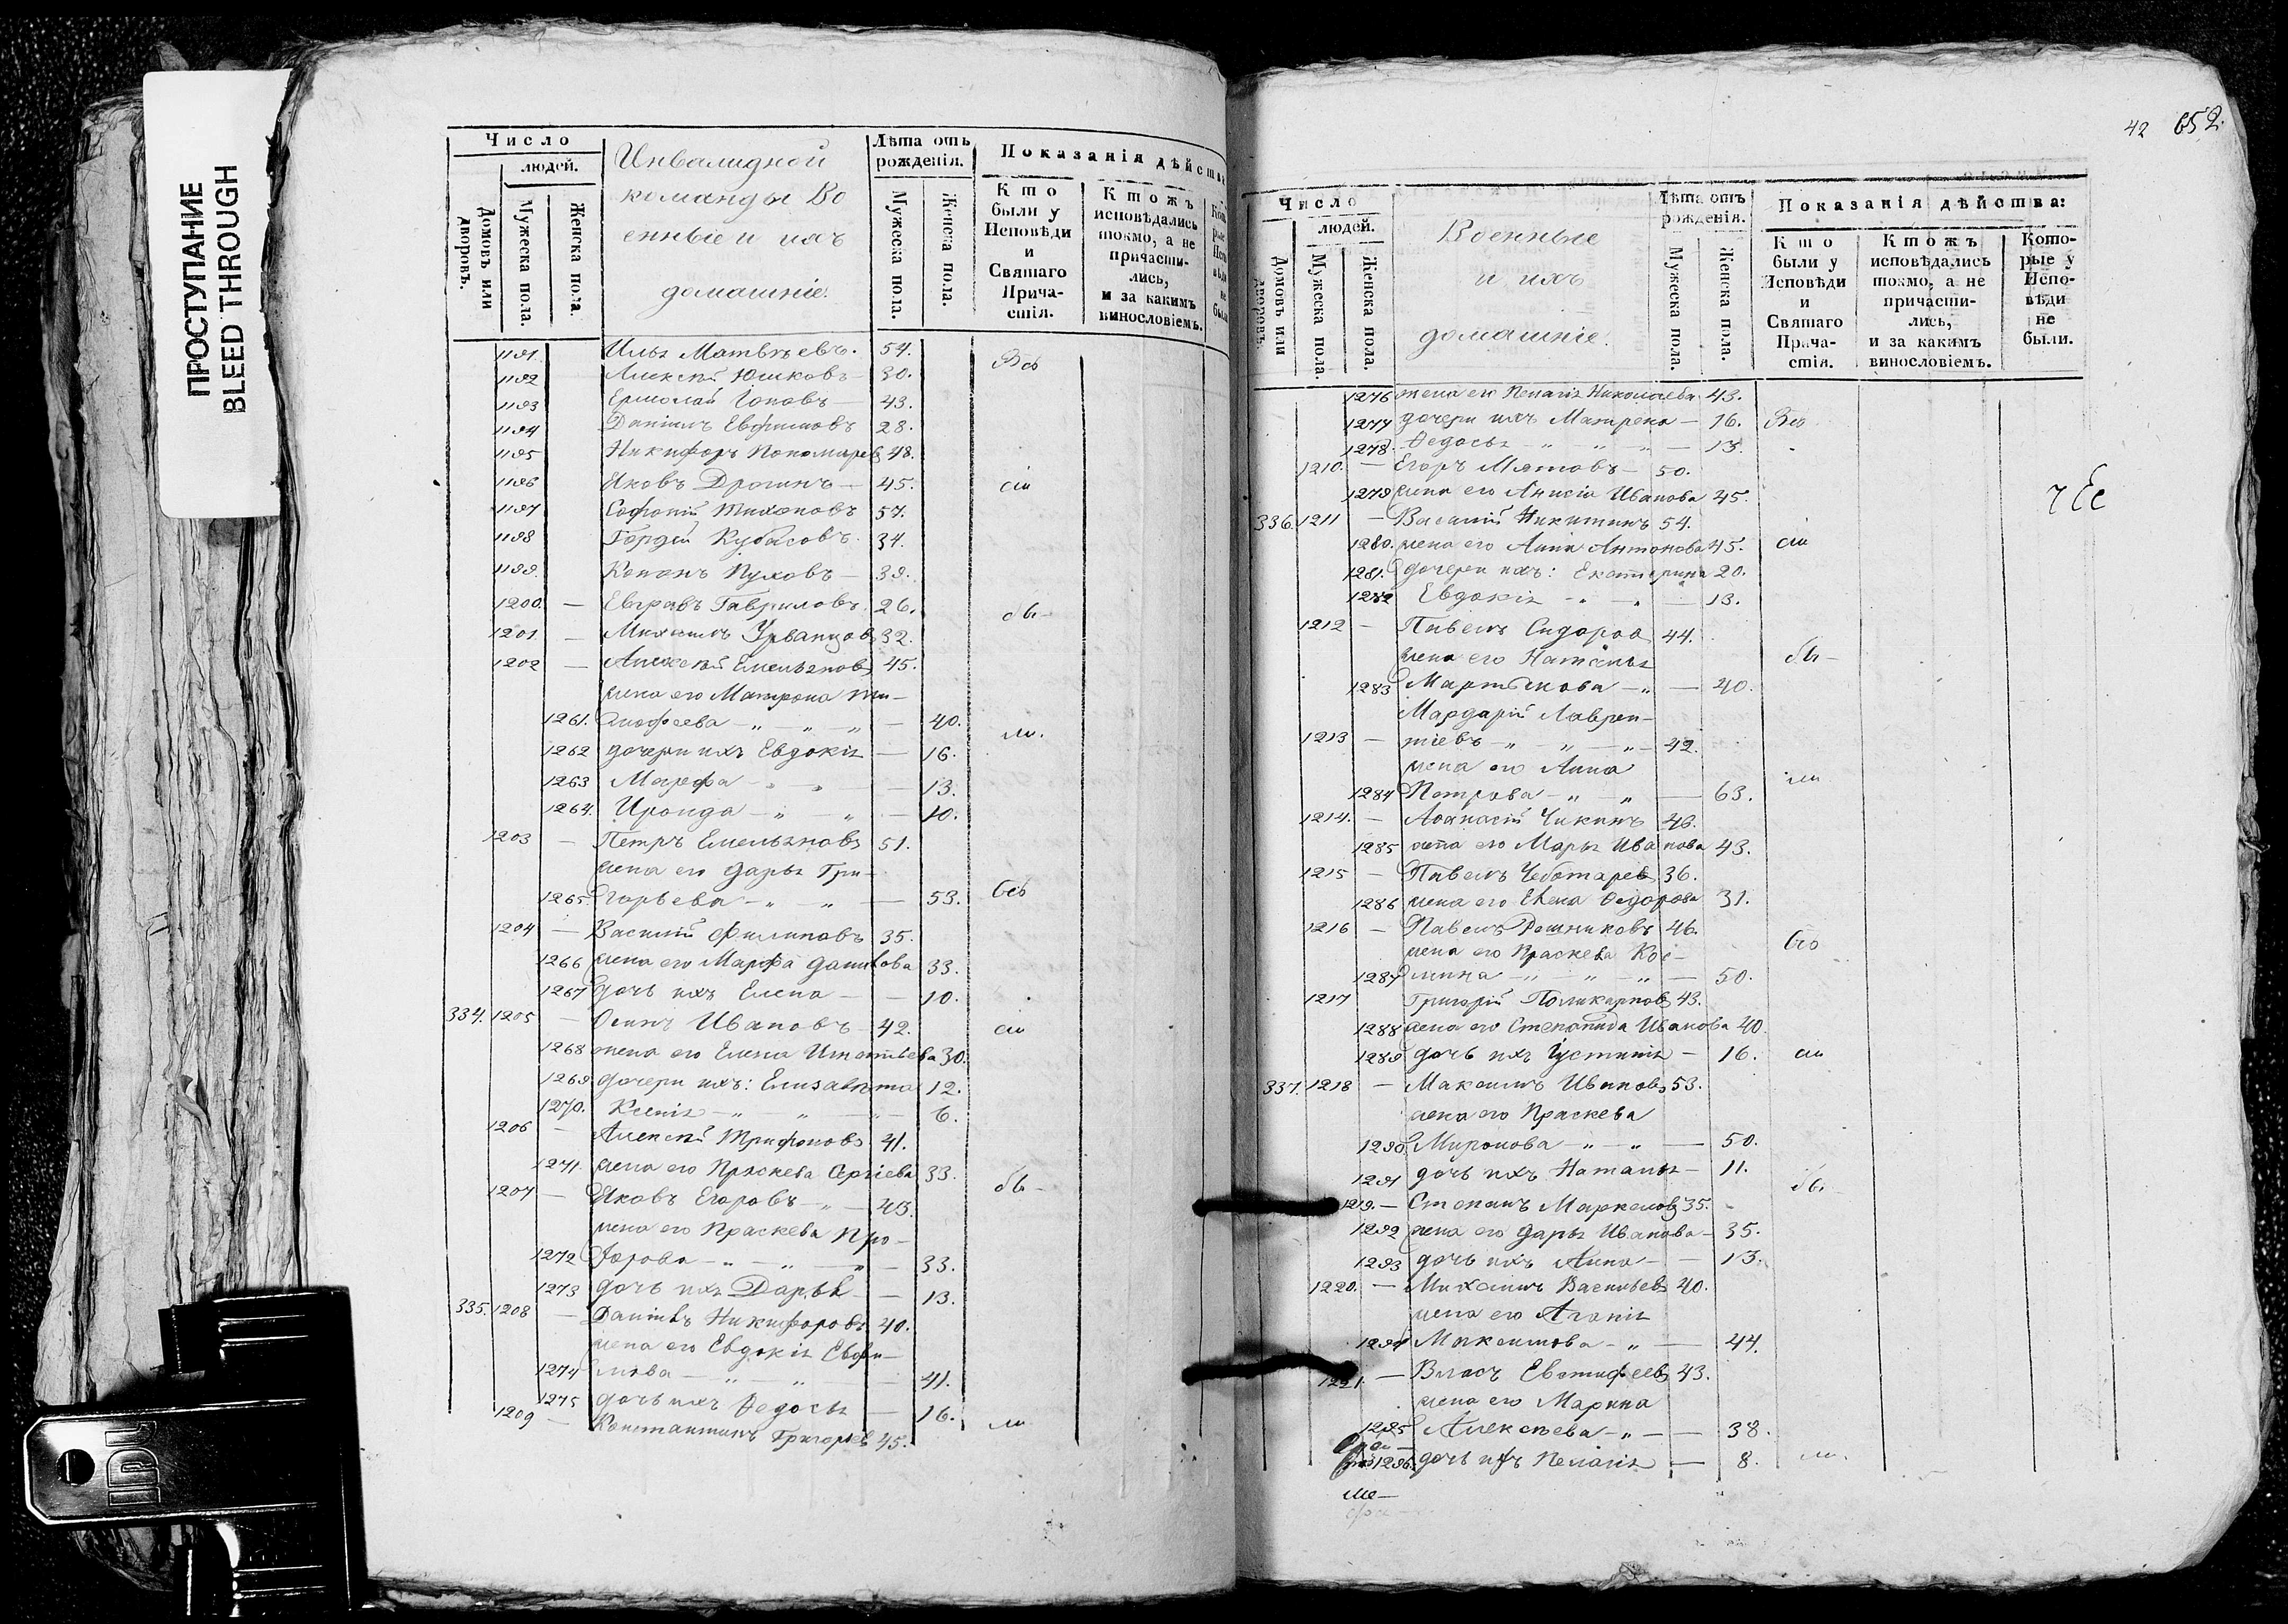 ПРОСТУПАНИЕ
BLEED THROUGH
Число
людей.
Домовъ или дворовъ.
Мужеска пола.
Женска пола.
Инвалидной
команды Во
енные и ихъ
домашніе.
Лѣта отъ
рожденія.
Мужеска пола.
Женска пола.
Показанія дѣйства
Кто
были у
Исповѣди
и
Святаго
Прича-
стія.
Ктожъ
исповѣдались
токмо, а не
причасти-
лись,
и за какимъ
винословіемъ.
1191. Илья Матвѣевъ. 54. Всѣ
1192 Алексѣй Юшковъ 30.
1193 Ермолай 43.
1194 Даніилъ Евфимовъ 28.
1195 Никифоръ Пономарев 48.
1196 Яковъ Дрогинъ — 45. сіи
1197 Софоній Тихоновъ 57.
1198 Гордѣй Кубасовъ. 34.
1199. Кононъ Пуховъ — 39.
1200. — Евграфъ Гавриловъ. 26. бы-
1201. — Михаилъ Урванцов 32.
1202 — Алексѣй Емельяновъ 45.
жена его Матрона Ти-
1261. мофеева — „ — „ — „ — 40. ли.
1262 дочери ихъ Евдокія — 16.
1263 Марфа — „ — „ — 13.
1264. Ироида — „ — „ — 10.
1203 — Петръ Емельяновъ 51.
жена его Дарья Гри-
1265. горьева — „ — „ — 53. Всѣ
1204 — Василій Филиповъ 35.
1266 жена его Марфа Данилова 33.
1267 дочь ихъ Елена — — 10.
334. 1205 — Осипъ Ивановъ — 42. сіи
1268 жена его Елена Игнатьева 30.
1269 дочери ихъ: Елизавѣта 12.
1270. Ксенія — „ — „ — „ — 6.
1206 — Алексѣй Трифоновъ 41.
1271. жена его Праскева Сергіева 33.
1207 — Яковъ Егоровъ — „ — 43. бы-
жена его Праскева Про-
1272 хорова — „ — „ — „ — 33.
1273 дочь ихъ Дарья — 13.
335. 1208 — Даніилъ Никифоровъ 40.
жена его Евдокія Евфи-
1274 мова — „ — „ — 41.
1275 дочь ихъ Федосья — 16.
1209 — Константинъ Григорьев 45. ли
42 652.
Число
людей.
Домовъ или дворовъ.
Мужеска пола.
Женска пола.
Военные
и ихъ
домашніе.
Лѣта отъ
рожденія.
Мужеска пола.
Женска пола.
Показанія дѣйства:
Кто
были у
Исповѣди
и
Святаго
Прича-
стія.
Ктожъ
исповѣдались
токмо, а не
причасти-
лись,
и за какимъ
винословіемъ.
Кото-
рые у
Испо-
вѣди
не
были.
1276 жена его Пелагія Николаева 43.
1277 дочери ихъ Матрена — 16. Всѣ
1278. Федосья — „ — „ — „ — 13.
1210. — Егоръ Мятовъ — 50.
1279 жена его Анисія Иванова 45.
336. 1211 — Василій Никитинъ 54.
1280. жена его Анна Антонова 45. сіи
1281. дочери ихъ: Екатерина 20.
1282 Евдокія — „ — „ — 13.
1212 — Павелъ Сидоров 44.
жена его Наталья бы-
1283 Мартынова — „ — 40.
Мардарій Лаврен-
1213 — тіевъ — „ — „ — „ — 42.
жена его Анна ли
1284 Петрова — „ — „ — 63.
1214. — Аѳанасій Чикинъ 46.
1285 жена его Марья Иванова 43.
1215 — Павелъ Чеботарев 36.
1286 жена его Елена Ѳедорова 31.
1216 — Павелъ Решниковъ 46.
жена его Праскева Кос- Всѣ
1287 мина — „ — „ — „ — 50.
1217 Григорій Поликарпов 43.
1288 жена его Степанида Иванова 40.
1289 дочь ихъ Іустинія — 16. сіи
337. 1218 — Максимъ Ивановъ 53.
жена его Праскева
1290. Миронова — „ — „ — 50.
1291 дочь ихъ Наталья — 11. бы-
1219. — Степанъ Маркелов 35.
1292 жена его Дарья Иванова — 35.
1293 дочь ихъ Анна — — 13.
1220. — Михаилъ Васильев 40.
жена его Агапія
1294 Максимова — „ — 44.
1221. — Власъ Евстифеев 43.
жена его Марина
1295 Алексѣева — „ — — 38.
1296. дочь ихъ Пелагія — 8. ли.